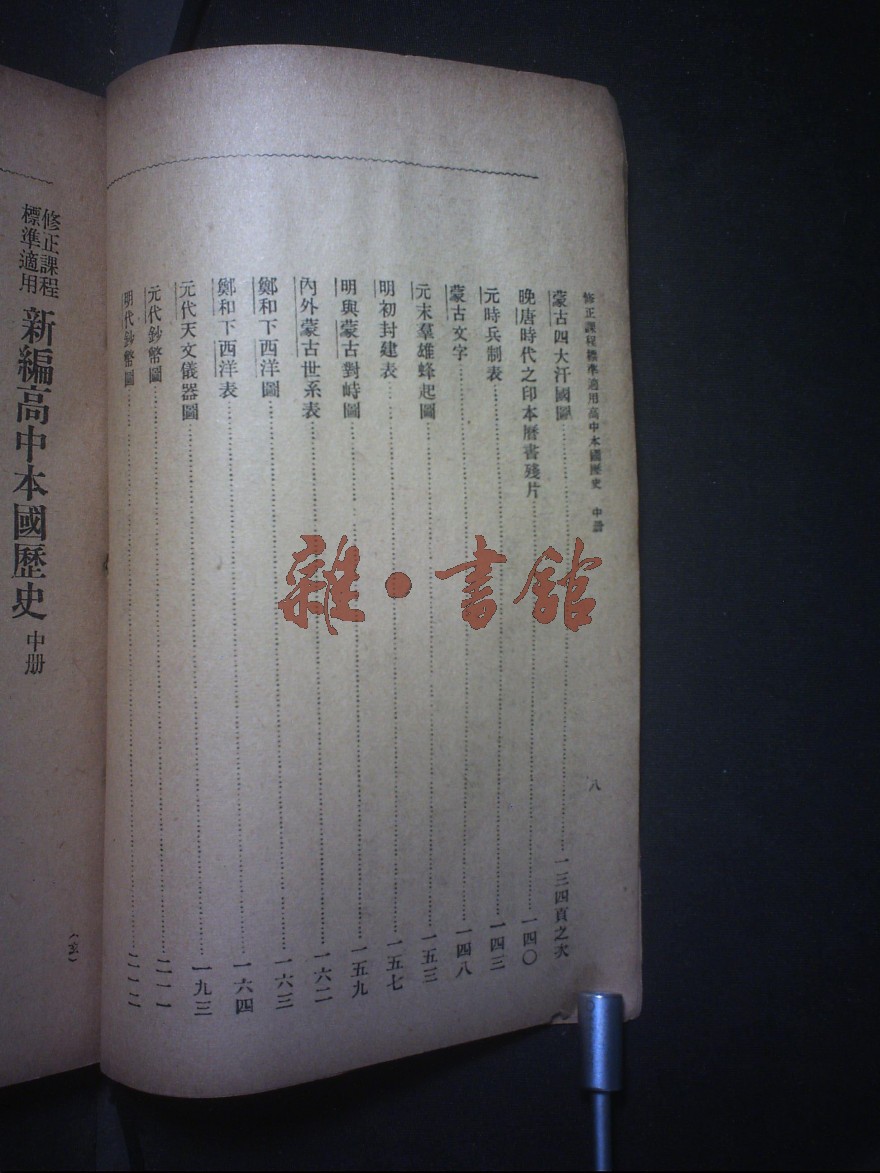 修正課程標準適用高中本國歷史 中册
八
蒙古四大汗國圖……一三四頁之次
晚唐時代之印本曆書殘片……一四〇
元時兵制表……一四三
蒙古文字……一四八
元末羣雄蜂起圖……一五三
明初封建表……一五七
明與蒙古對峙圖……一五九
內外蒙古世系表……一六二
鄭和下西洋圖……一六三
鄭和下西洋表……一六四
元代天文儀器圖……一九三
元代鈔幣圖……二一一
明代鈔幣圖……二一二
修正課程
標準適用
新編高中本國歷史 中册
雜·書館